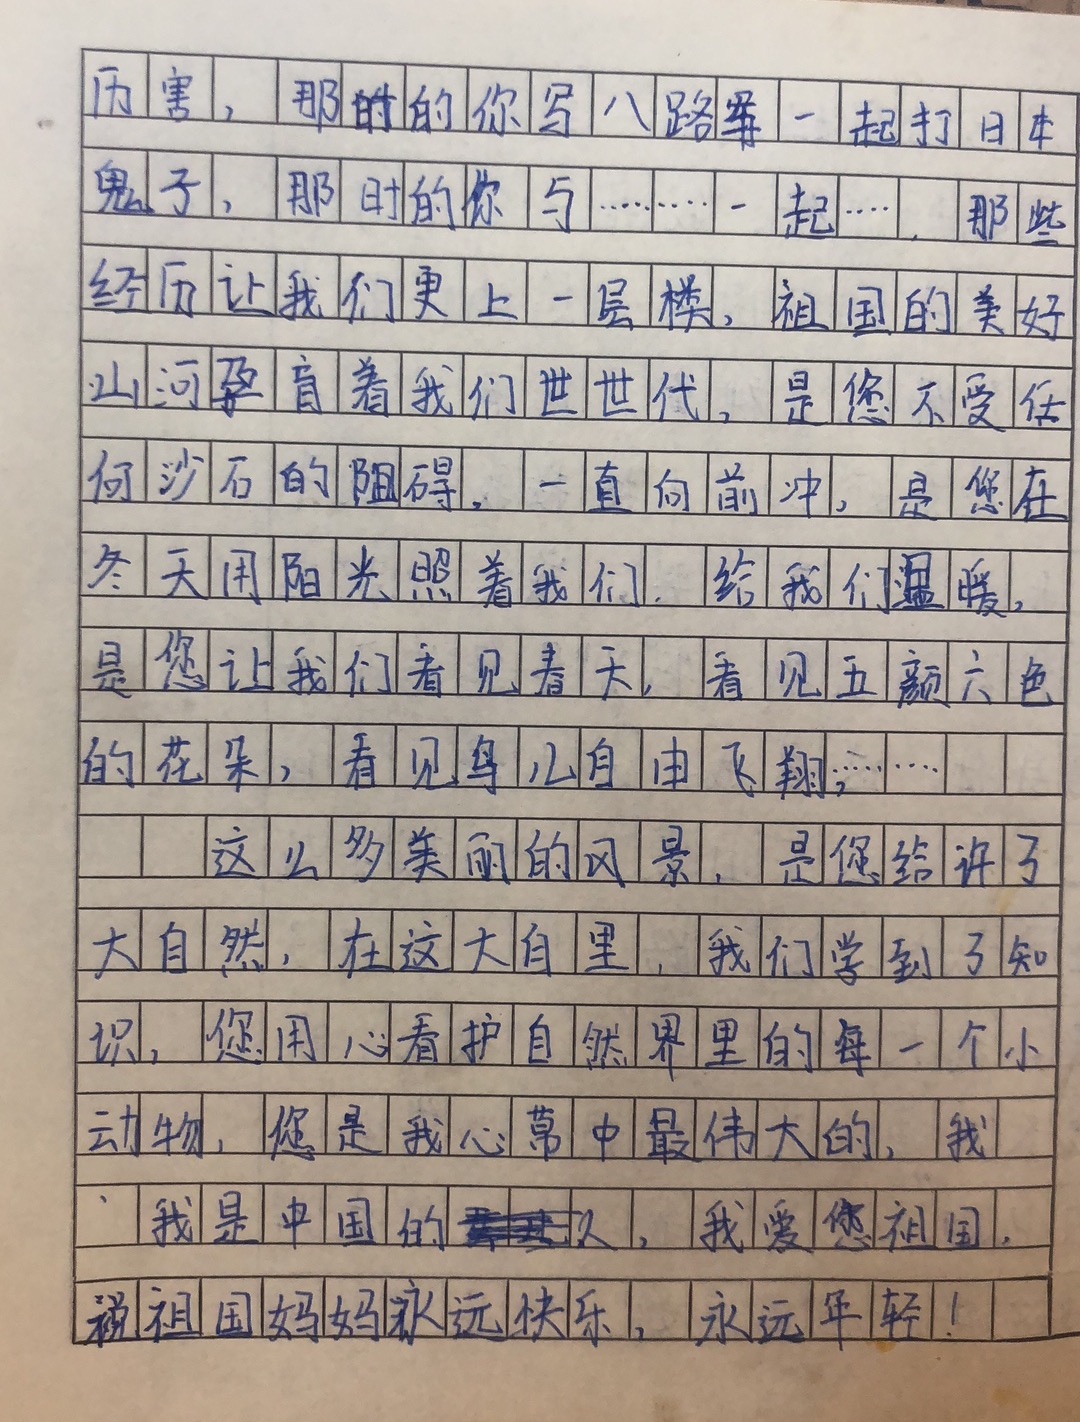 历害，那时的你写八路军一起打日本
鬼子，那时的你与………一起……，那些
经历让我们更上一层楼，祖国的美好
山河孕育着我们世世代，是您不受任
何沙石的阻碍，一直向前冲，是您在
冬天用阳光照着我们，给我们温暖，
是您让我们看见春天，看见五颜六色
的花朵，看见鸟儿自由飞翔，……
这么多美丽的风景，是您给许了
大自然，在这大自里，我们学到了知
识，您用心看护自然界里的每一个小
动物，您是我心中最伟大的，我
我是中国的人，我爱您祖国，
祝祖国妈妈永远快乐，永远年轻！